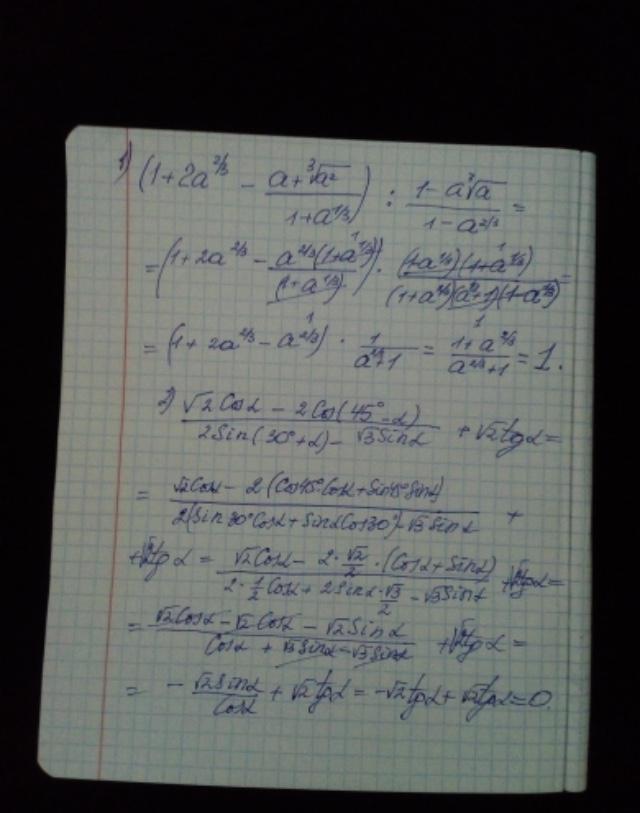 1) (1+2a^{2/3} - \frac{a+\sqrt[3]{a^2}}{1+a^{1/3}}) : \frac{1-a\sqrt[3]{a}}{1-a^{2/3}} =
= (1+2a^{2/3} - \frac{a^{2/3}(1+a^{1/3})}{(1+a^{1/3})}) · \frac{(1-a^{1/3})(1+a^{1/3})}{(1+a^{1/3})(a^{2/3}+1)(1-a^{1/3})} =
= (1+2a^{2/3} - a^{2/3}) · \frac{1}{a^{2/3}+1} = \frac{1+a^{2/3}}{a^{2/3}+1} = 1.
2) \frac{√2 Cos α - 2Cos(45° - α)}{2Sin(30° + α) - √3 Sin α} + √2 tg α =
= \frac{√2 Cos α - 2(Cos 45° Cos α + Sin 45° Sin α)}{2(Sin 30° Cos α + Sin α Cos 30°) - √3 Sin α} +
+ √2 tg α = \frac{√2 Cos α - 2 · \frac{√2}{2} · (Cos α + Sin α)}{2 · \frac{1}{2} Cos α + 2 Sin α · \frac{√3}{2} - √3 Sin α} + √2 tg α =
= \frac{√2 Cos α - √2 Cos α - √2 Sin α}{Cos α + √3 Sin α - √3 Sin α} + √2 tg α =
= - \frac{√2 Sin α}{Cos α} + √2 tg α = -√2 tg α + √2 tg α = 0.